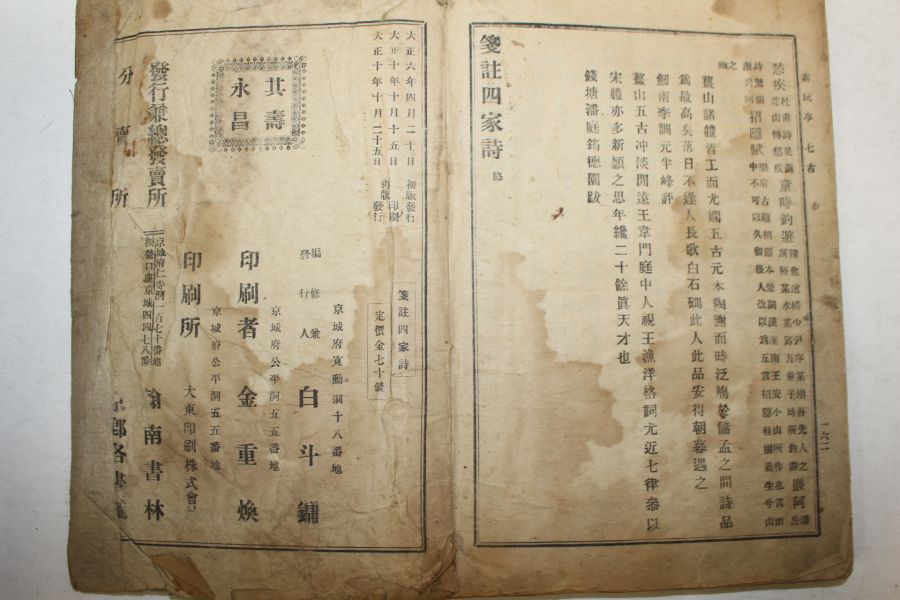 素玩亭 七古
愁疾 童時鈞遊
詩 招隱賦
之
薑山諸體皆工而尤嫺五古元本陶謝而時泛鶩於儲孟之間詩品
爲最高矣落日不逢人長歌白石磵此人此品安得朝暮遇之
劒南李調元半峰評
薑山五古冲淡閒遠王韋門庭中人視王漁洋格詞尤近七律參以
宋軆亦多新穎之思年纔二十餘眞天才也
錢塘潘庭筠德園跋
箋註四家詩 終
一六二
大正六年四月二十日 初版發行
大正十年十月十五日 印刷
大正十年十月二十五日 再版發行
箋註四家詩
定價金七十錢
其壽永昌
京城府寬勳洞十八番地
編修兼發行人 白斗鏞
京城府公平洞五五番地
印刷者 金重煥
京城府公平洞五五番地
印刷所 大東印刷株式會社
發行兼總發賣所
京城府仁寺洞一百七十番地
振替口座京城四四七八番
翰南書林
分賣所